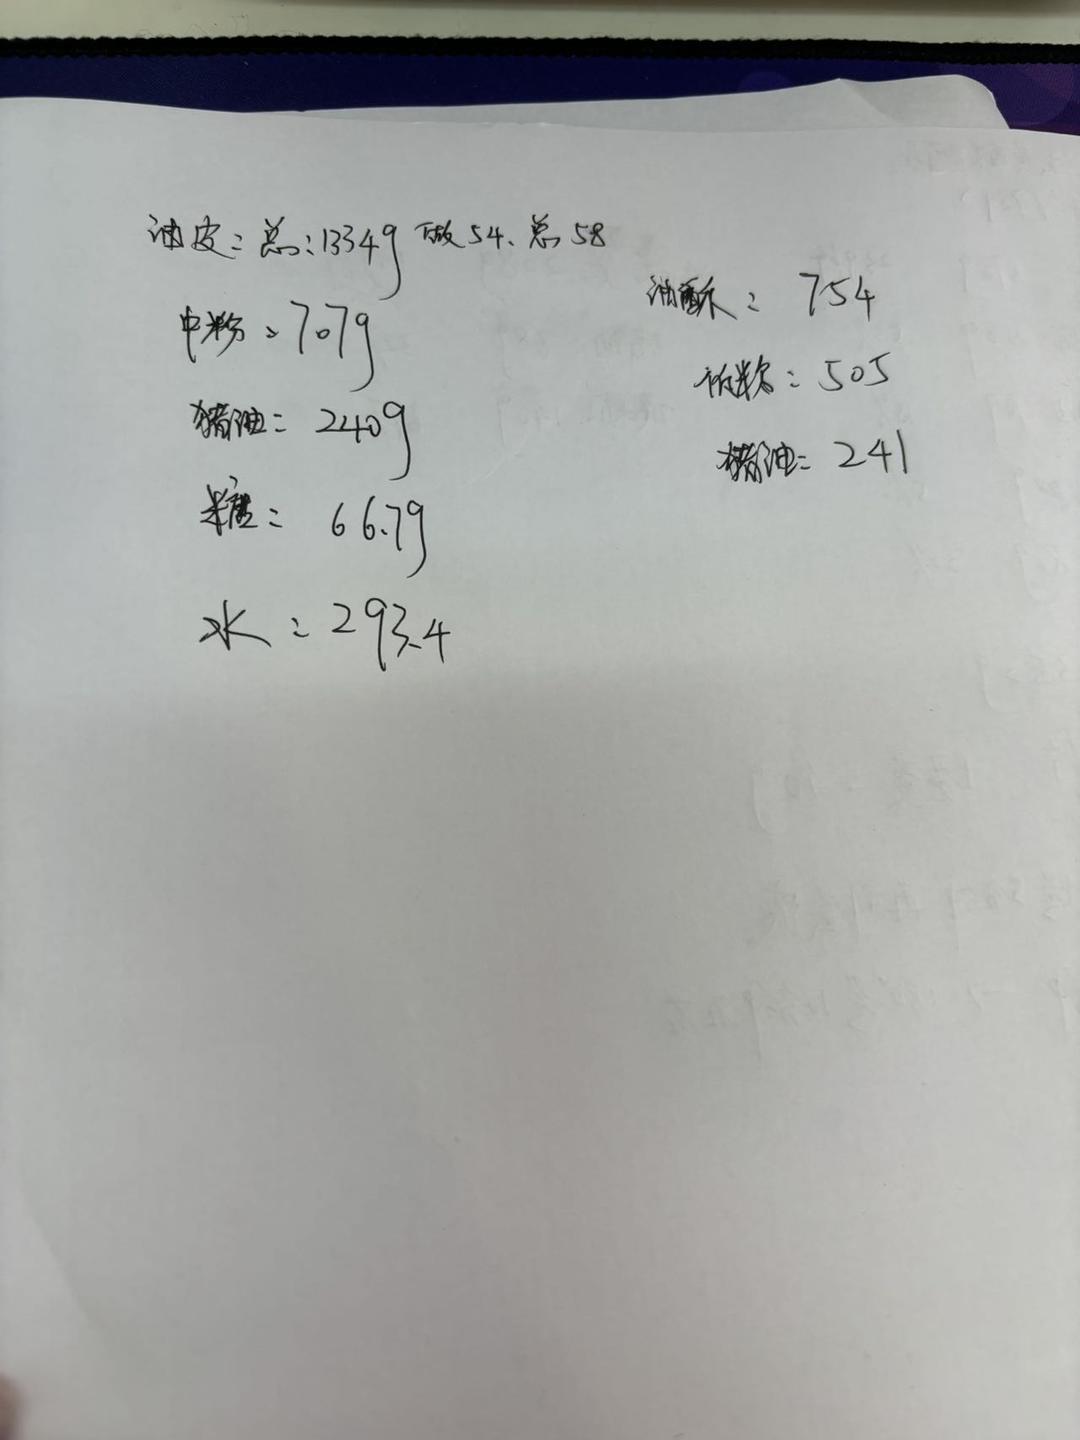 油皮：总：1334g 做54、总58
中粉：707g
猪油：240g
糖：66.7g
水：293.4
油酥：754
低粉：505
猪油：241